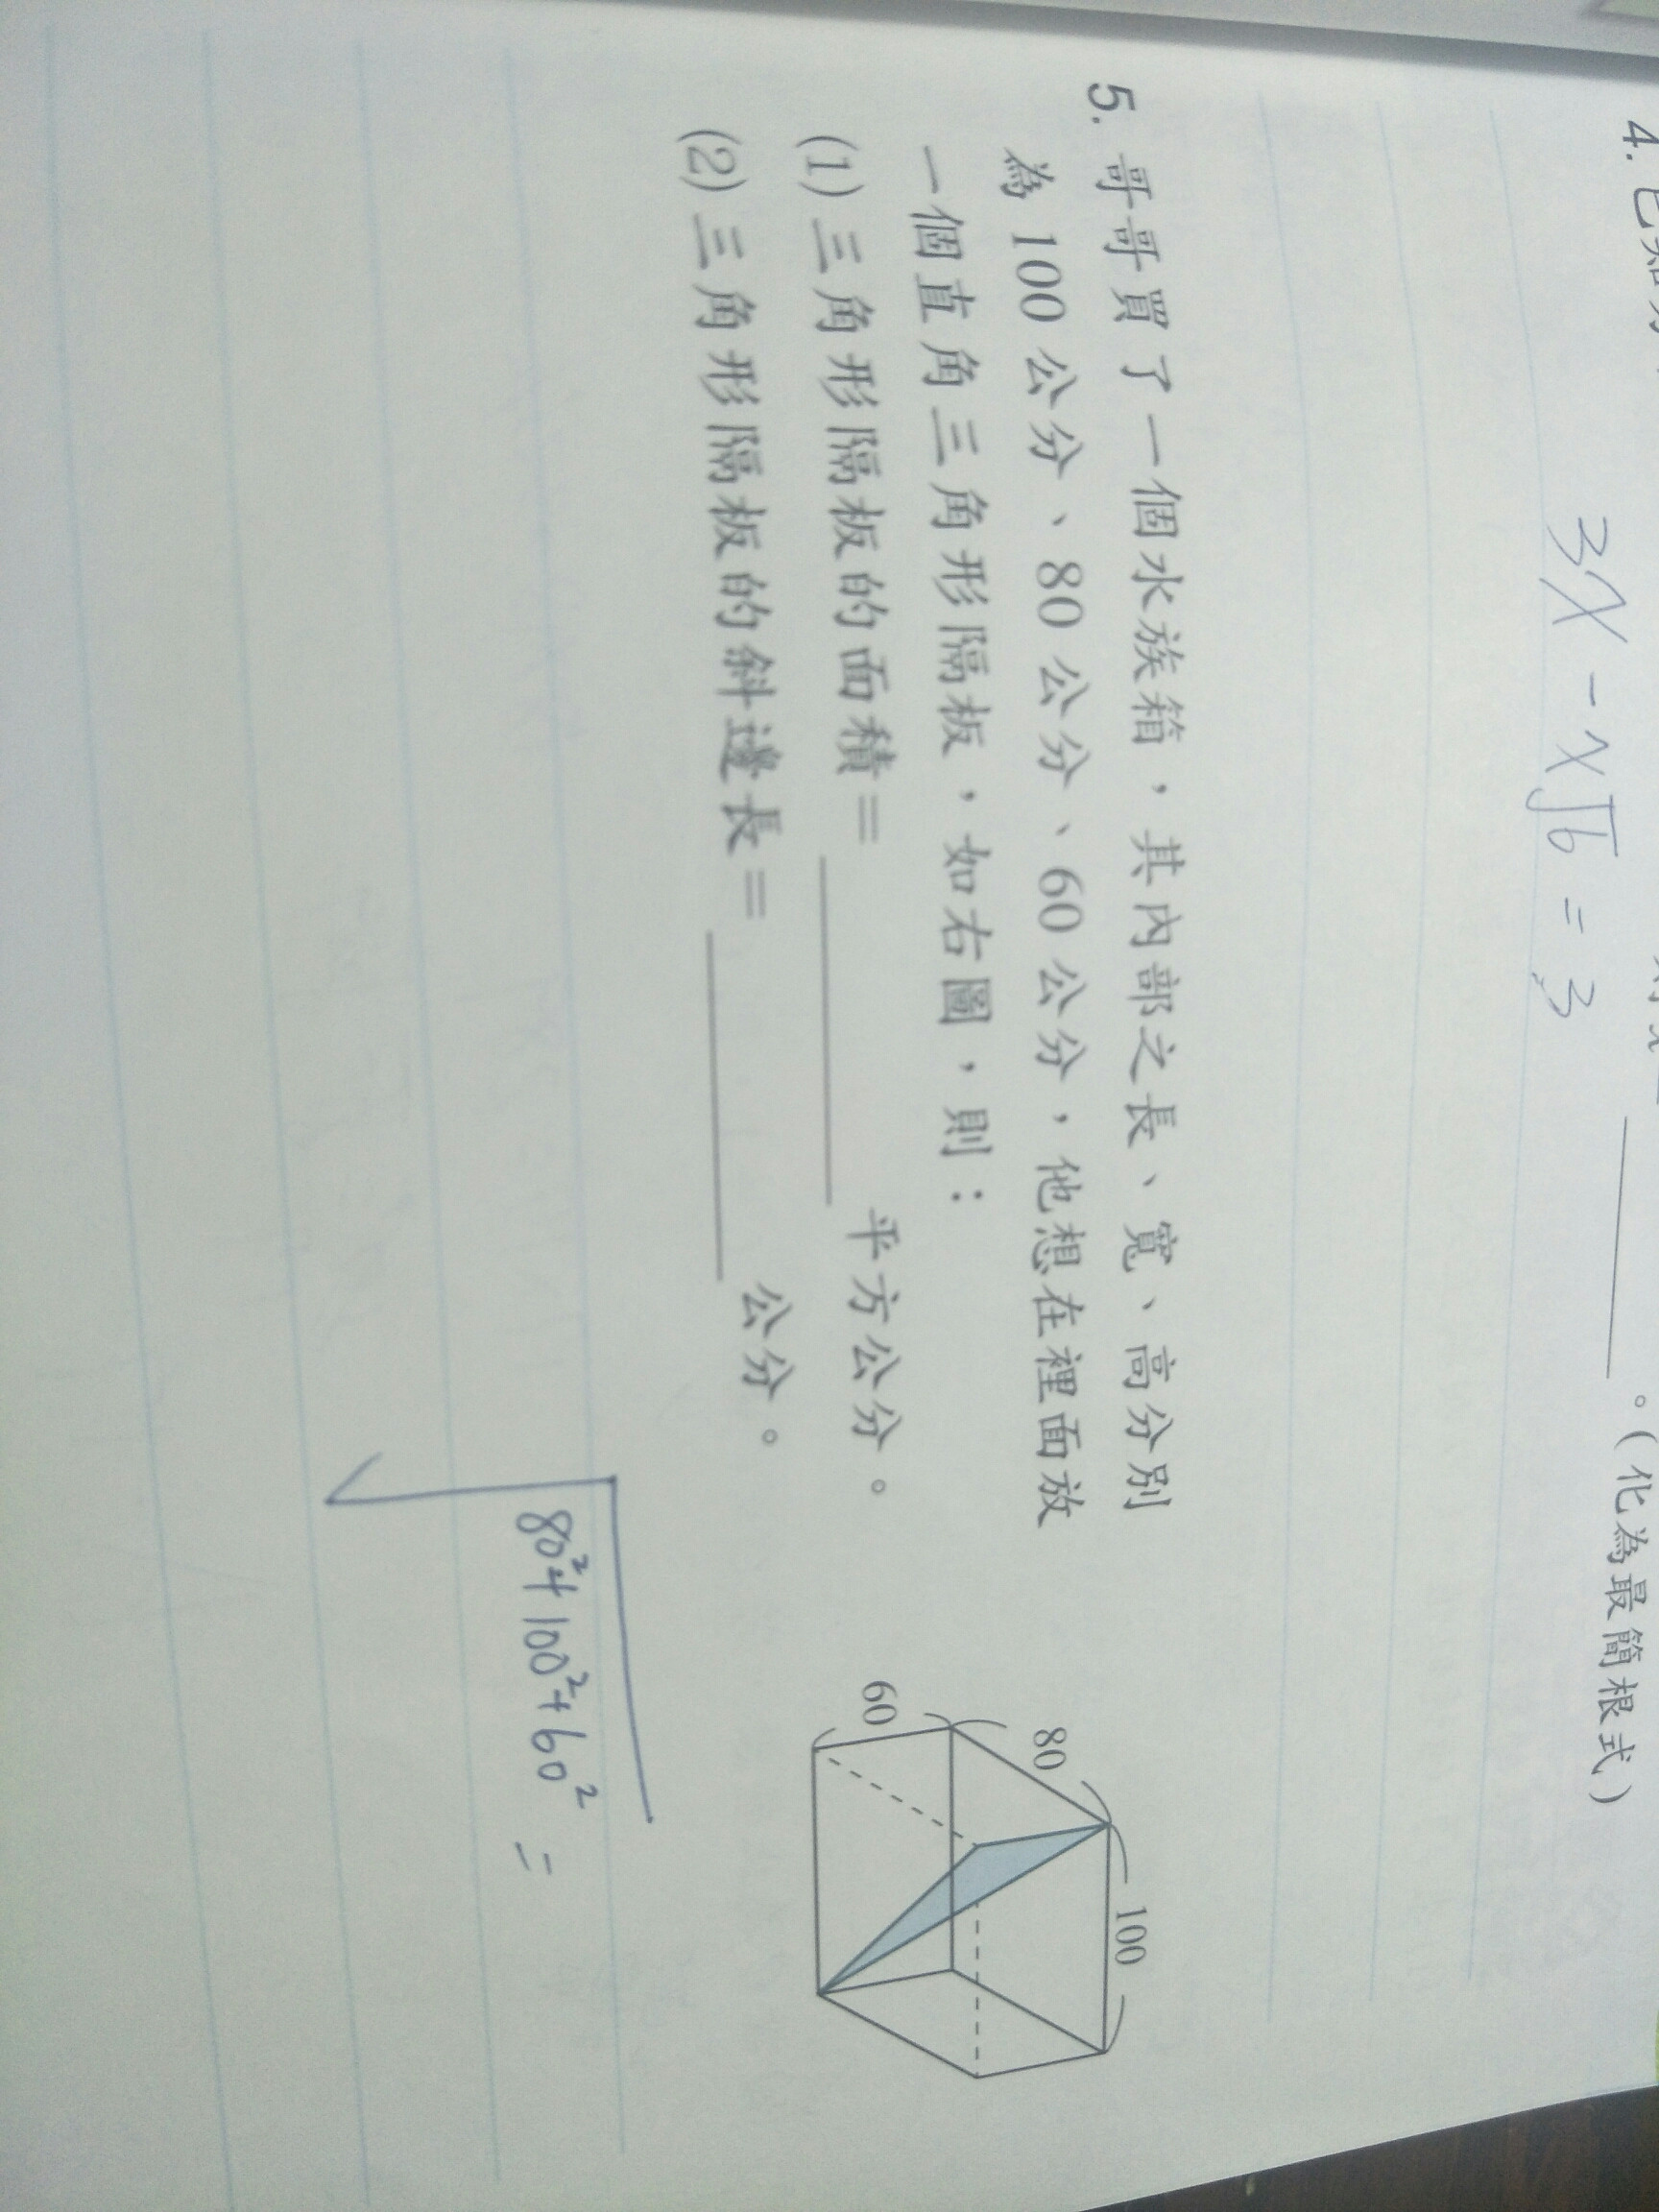 4. 已知
。(化為最簡根式)
3x - x√6 = 3
5. 哥哥買了一個水族箱，其內部之長、寬、高分別
為 100 公分、80 公分、60 公分，他想在裡面放
一個直角三角形隔板，如右圖，則：
(1) 三角形隔板的面積＝ 平方公分。
(2) 三角形隔板的斜邊長＝ 公分。
100
80
60
√80²+100²+60² =